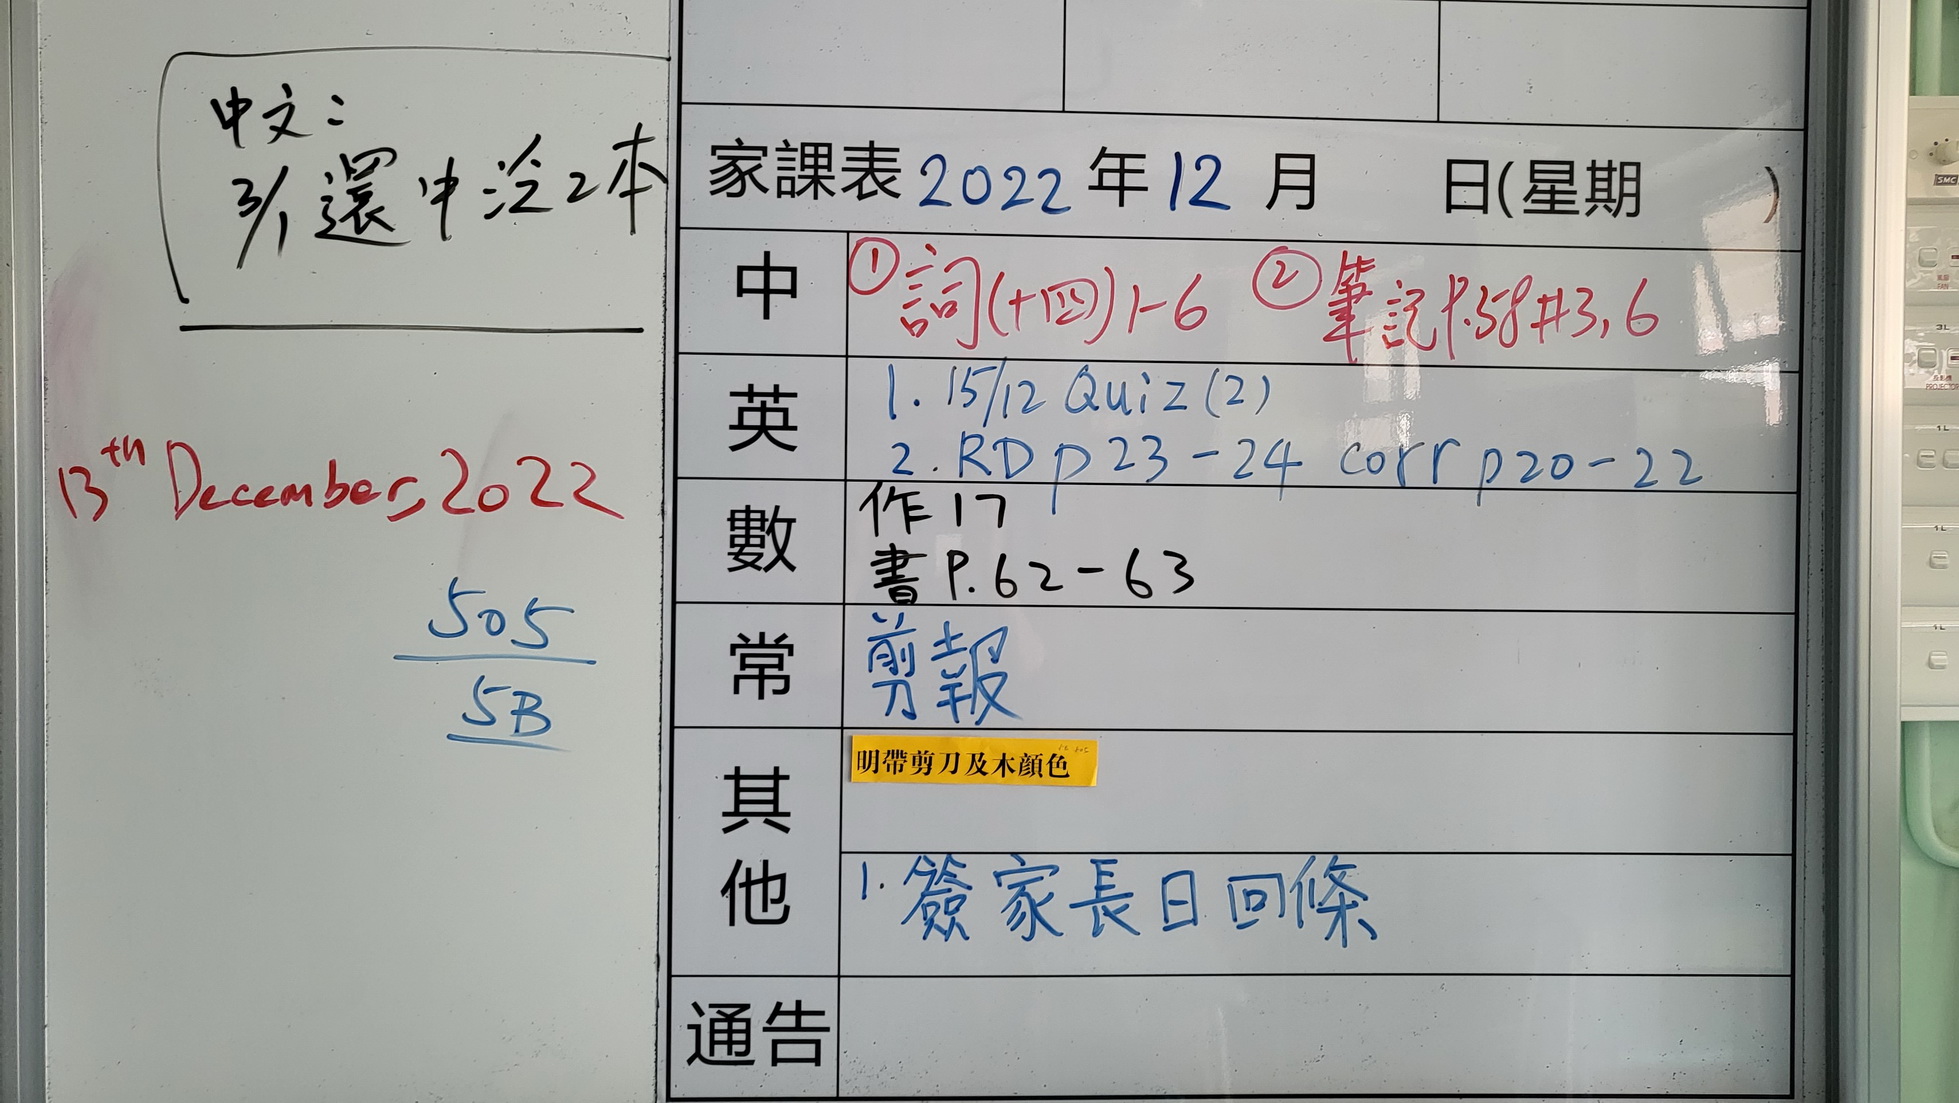 中文:
3/1 還中泛2本
13th December, 2022
505
5B
家課表 2022 年 12 月 日(星期 )
中 ① 詞(十四) 1-6 ② 筆記 P.58 #3, 6
英 1. 15/12 Quiz (2)
2. RD p 23 - 24 corr p 20 - 22
數 作 17
書 P. 62 - 63
常 剪報
其他 明帶剪刀及木顏色
1. 簽家長日回條
通告
SMC